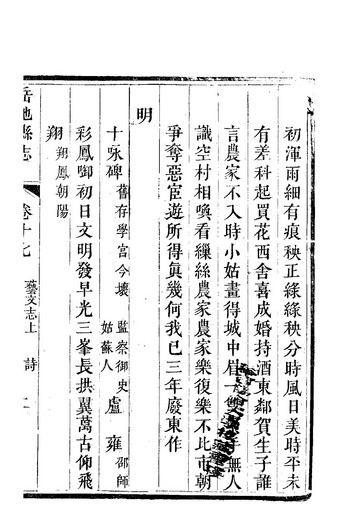 初渾雨細有痕秧正綠綠秧分時風日美時平未
有差科起買花西舍喜成婚持酒東鄰賀生子誰
言農家不入時小姑畫得城中眉一雙無人
識空村相喚看繅絲農家農家樂復樂不比市朝
爭奪惡宦遊所得眞幾何我已三年廢東作
明
十咏碑 舊存學宮今壞 監察御史 盧雍 邵師 姑蘇人
彩鳳啣初日文明發早光三峯長拱翼萬古仰飛
翔 翔鳳朝陽
岳池縣志 卷十七 藝文志上 詩 二